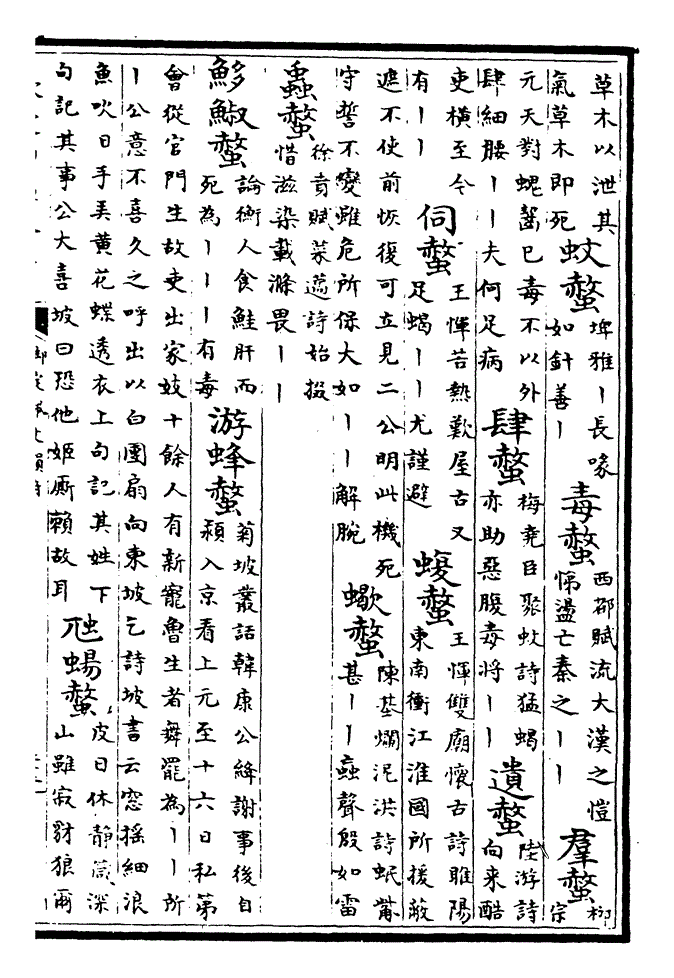 草木以泄其
氣草木即死
蚊螫
埤雅丨長喙
如針善丨
毒螫
西都賦流大漢之愷
悌盪亡秦之丨丨
羣螫
柳
宗
元天對螝齧已毒不以外
肆細腰丨丨夫何足病
肆螫
梅堯臣聚蚊詩猛蝎
亦助惡腹毒將丨丨
遺螫
陸游詩
向来酷
吏橫至今
有丨丨
伺螫
王惲苦熱歎屋古又
足蝎丨丨尤謹避
蝮螫
王惲雙廟懷古詩睢陽
東南衝江淮國所援蔽
遮不使前恢復可立見二公明此機死
守誓不變雖危所保大如丨丨解腕
蠍螫
陳基爛泥洪詩蚊甞
甚丨丨蝱聲殷如雷
蠱螫
徐賁賦菜薖詩始掇
惜滋染載滌畏丨丨
𩶱䱙螫
論衡人食鮭肝而
死為丨丨丨有毒
游蜂螫
菊坡叢話韓康公絳謝事後自
潁入京看上元至十六日私第
會從官門生故吏出家妓十餘人有新寵魯生者舞罷為丨丨所
丨公意不喜久之呼出以白團扇向東坡乞詩坡書云窓搖細浪
魚吹日手弄黃花蝶透衣上句記其姓下
句記其事公大喜坡曰恐他姬厮賴故耳
虺蜴螫
皮日休靜箴深
山雖寂豺狼爾
御定佩文韻府